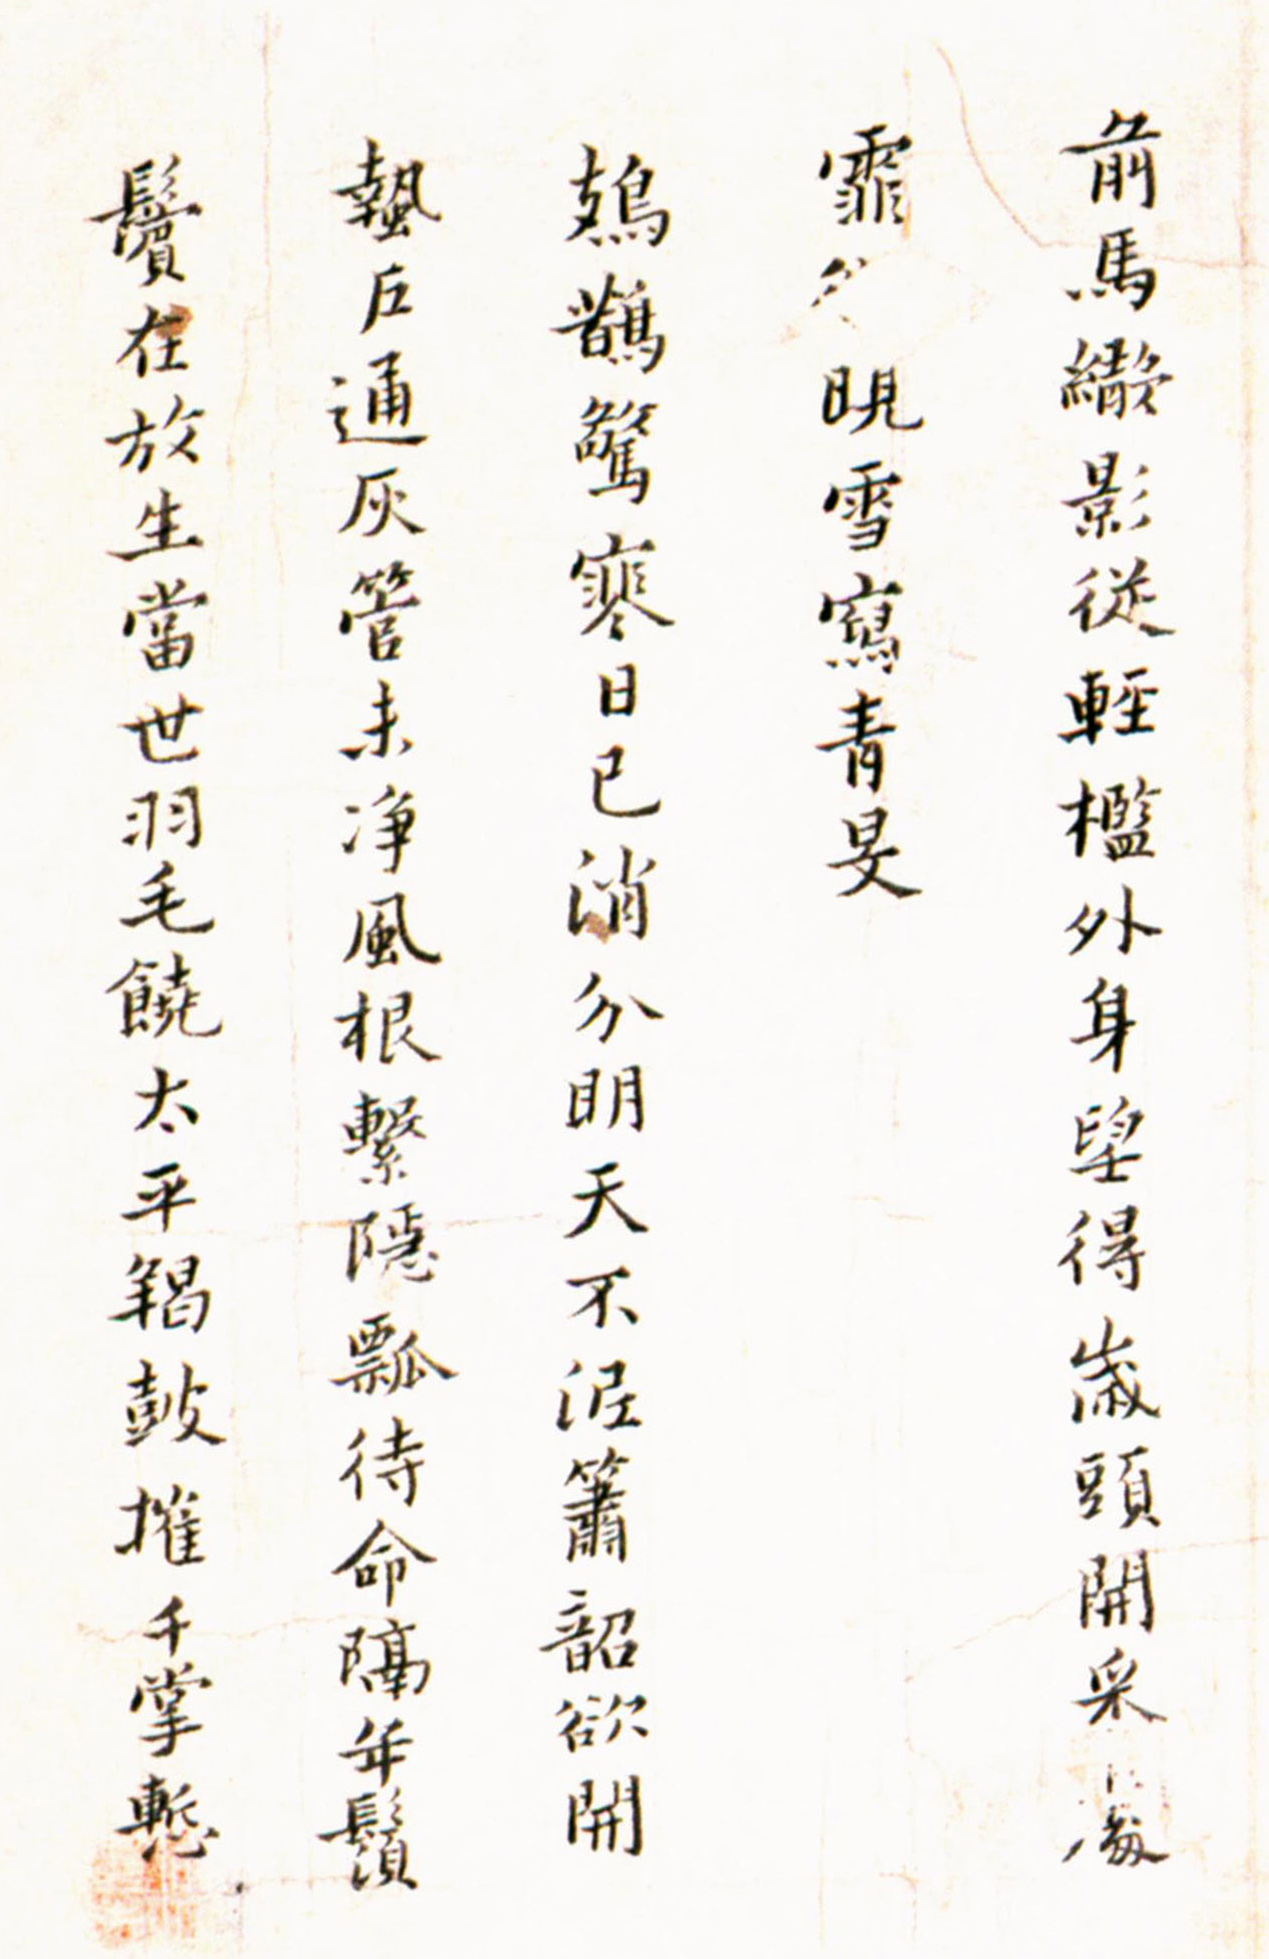 前馬繖影從輕檻外身壁得歲頭開采
霏 晛雪寫青旻
鳷鵲驚寒日已消分明天不泥簫韶欲開
蟄戶通灰管未淨風根繫隱瓢待命隔年鬚
鬢在放生當世羽毛饒太平羯鼓摧千掌慙